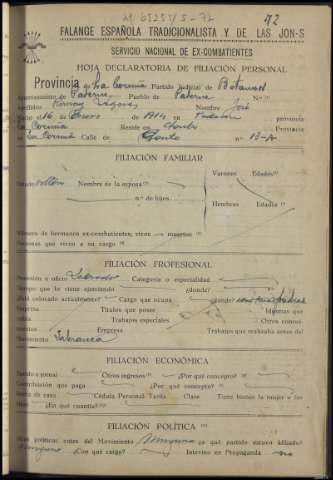 42
FALANGE ESPAÑOLA TRADICIONALISTA Y DE LAS JON-S
SERVICIO NACIONAL DE EX-COMBATIENTES
HOJA DECLARATORIA DE FILIACION PERSONAL
Provincia de La Coruña Partido Judicial de
Ayuntamiento de Paderne Pueblo de Paderne N.º
Apellidos Nombre José
el 16 de Enero de 1914 en provincia
La Coruña Reside en Provincia
La Coruña Calle de n.º 13-A
FILIACIÓN FAMILIAR
Estado Nombre de la esposa Varones Edades
n.º de hijos Hembras Edades
Número de hermanos ex-combatientes, vivos muertos
Personas que viven a su cargo
FILIACIÓN PROFESIONAL
Profesión u oficio Labrador Categoría o especialidad
Tiempo que lo viene ejerciendo ¿dónde?
¿Está colocado actualmente? Cargo que ocupa ¿dónde? con sus padres
Empresa Títulos que posee Idiomas que
Trabajos especiales Otros conoc-
Empresa Trabajos que realizaba antes del
Movimiento Labranza
FILIACIÓN ECONÓMICA
Sueldo o jornal Otros ingresos ¿Por qué concepto?
Contribución que paga ¿Por qué concepto?
Cédula Personal Tarifa Clase Tiene bienes la mujer o los
¿En qué cuantía?
FILIACIÓN POLÍTICA
políticas antes del Movimiento Ninguna en qué partido estuvo afiliado?
Ninguno ¿Con qué cargo? Intervino en Propaganda no